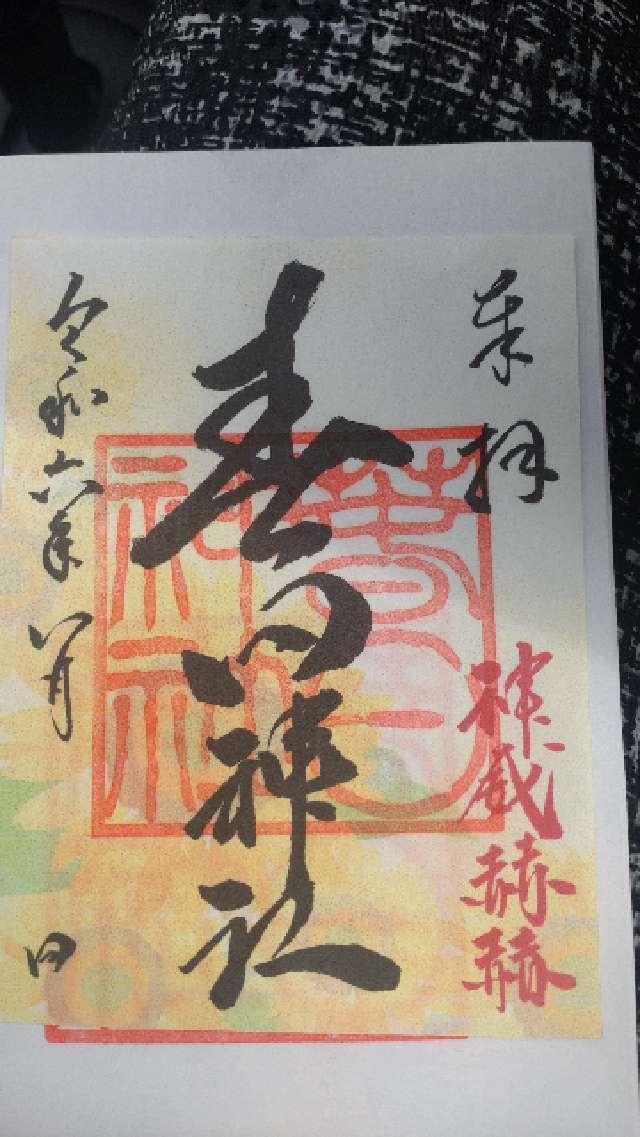 奉拝
神威赫赫
春日神社
春日神社
令和六年八月 日